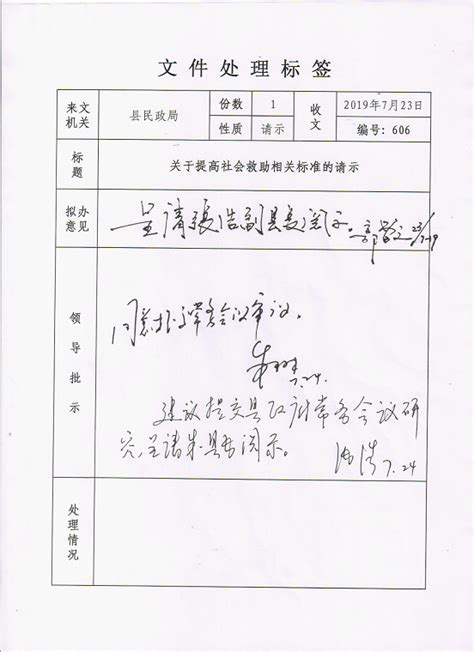 文件处理标签
来文机关 县民政局 份数 1 收文 2019年7月23日
性质 请示 编号：606
标题 关于提高社会救助相关标准的请示
拟办意见 呈请张浩副县长阅示。
23/7-19
领导批示
同意提交常务会议审议。
7.24.
建议提交县政府常务会议研
究呈请朱县长阅示。
7.24
处理情况